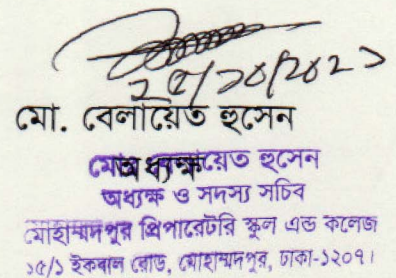 ২৫/১০/২০২১
মো. বেলায়েত হুসেন
অধ্যক্ষ
মোঃ বেলায়েত হুসেন
অধ্যক্ষ ও সদস্য সচিব
মোহাম্মদপুর প্রিপারেটরি স্কুল এন্ড কলেজ
১৫/১ ইকবাল রোড, মোহাম্মদপুর, ঢাকা-১২০৭।